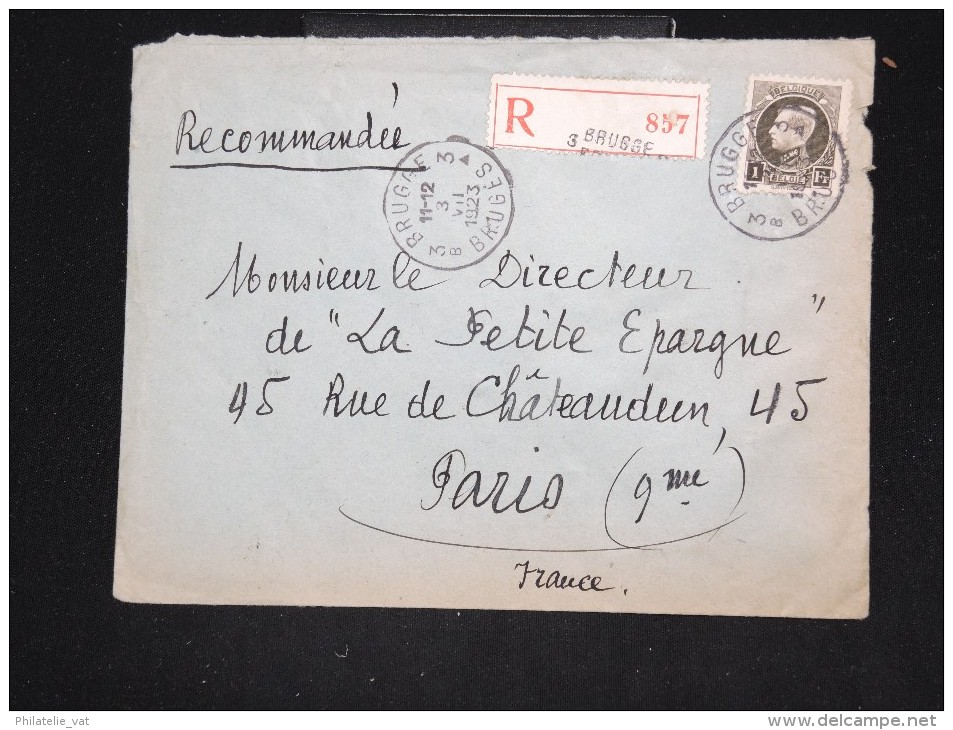 Recommandée
R
857
BRUGGE
3
BELGIQUE
1 BELGIË Fr
BRUGGE 3
11-12
3
VII
1923
3 B BRUGES
BRUGGE 3
3 B BRU
Monsieur le Directeur
de "La Petite Epargne"
45 Rue de Châteaudun, 45
Paris (9me)
France.
Philatelie_vat
http://www.delcampe.net